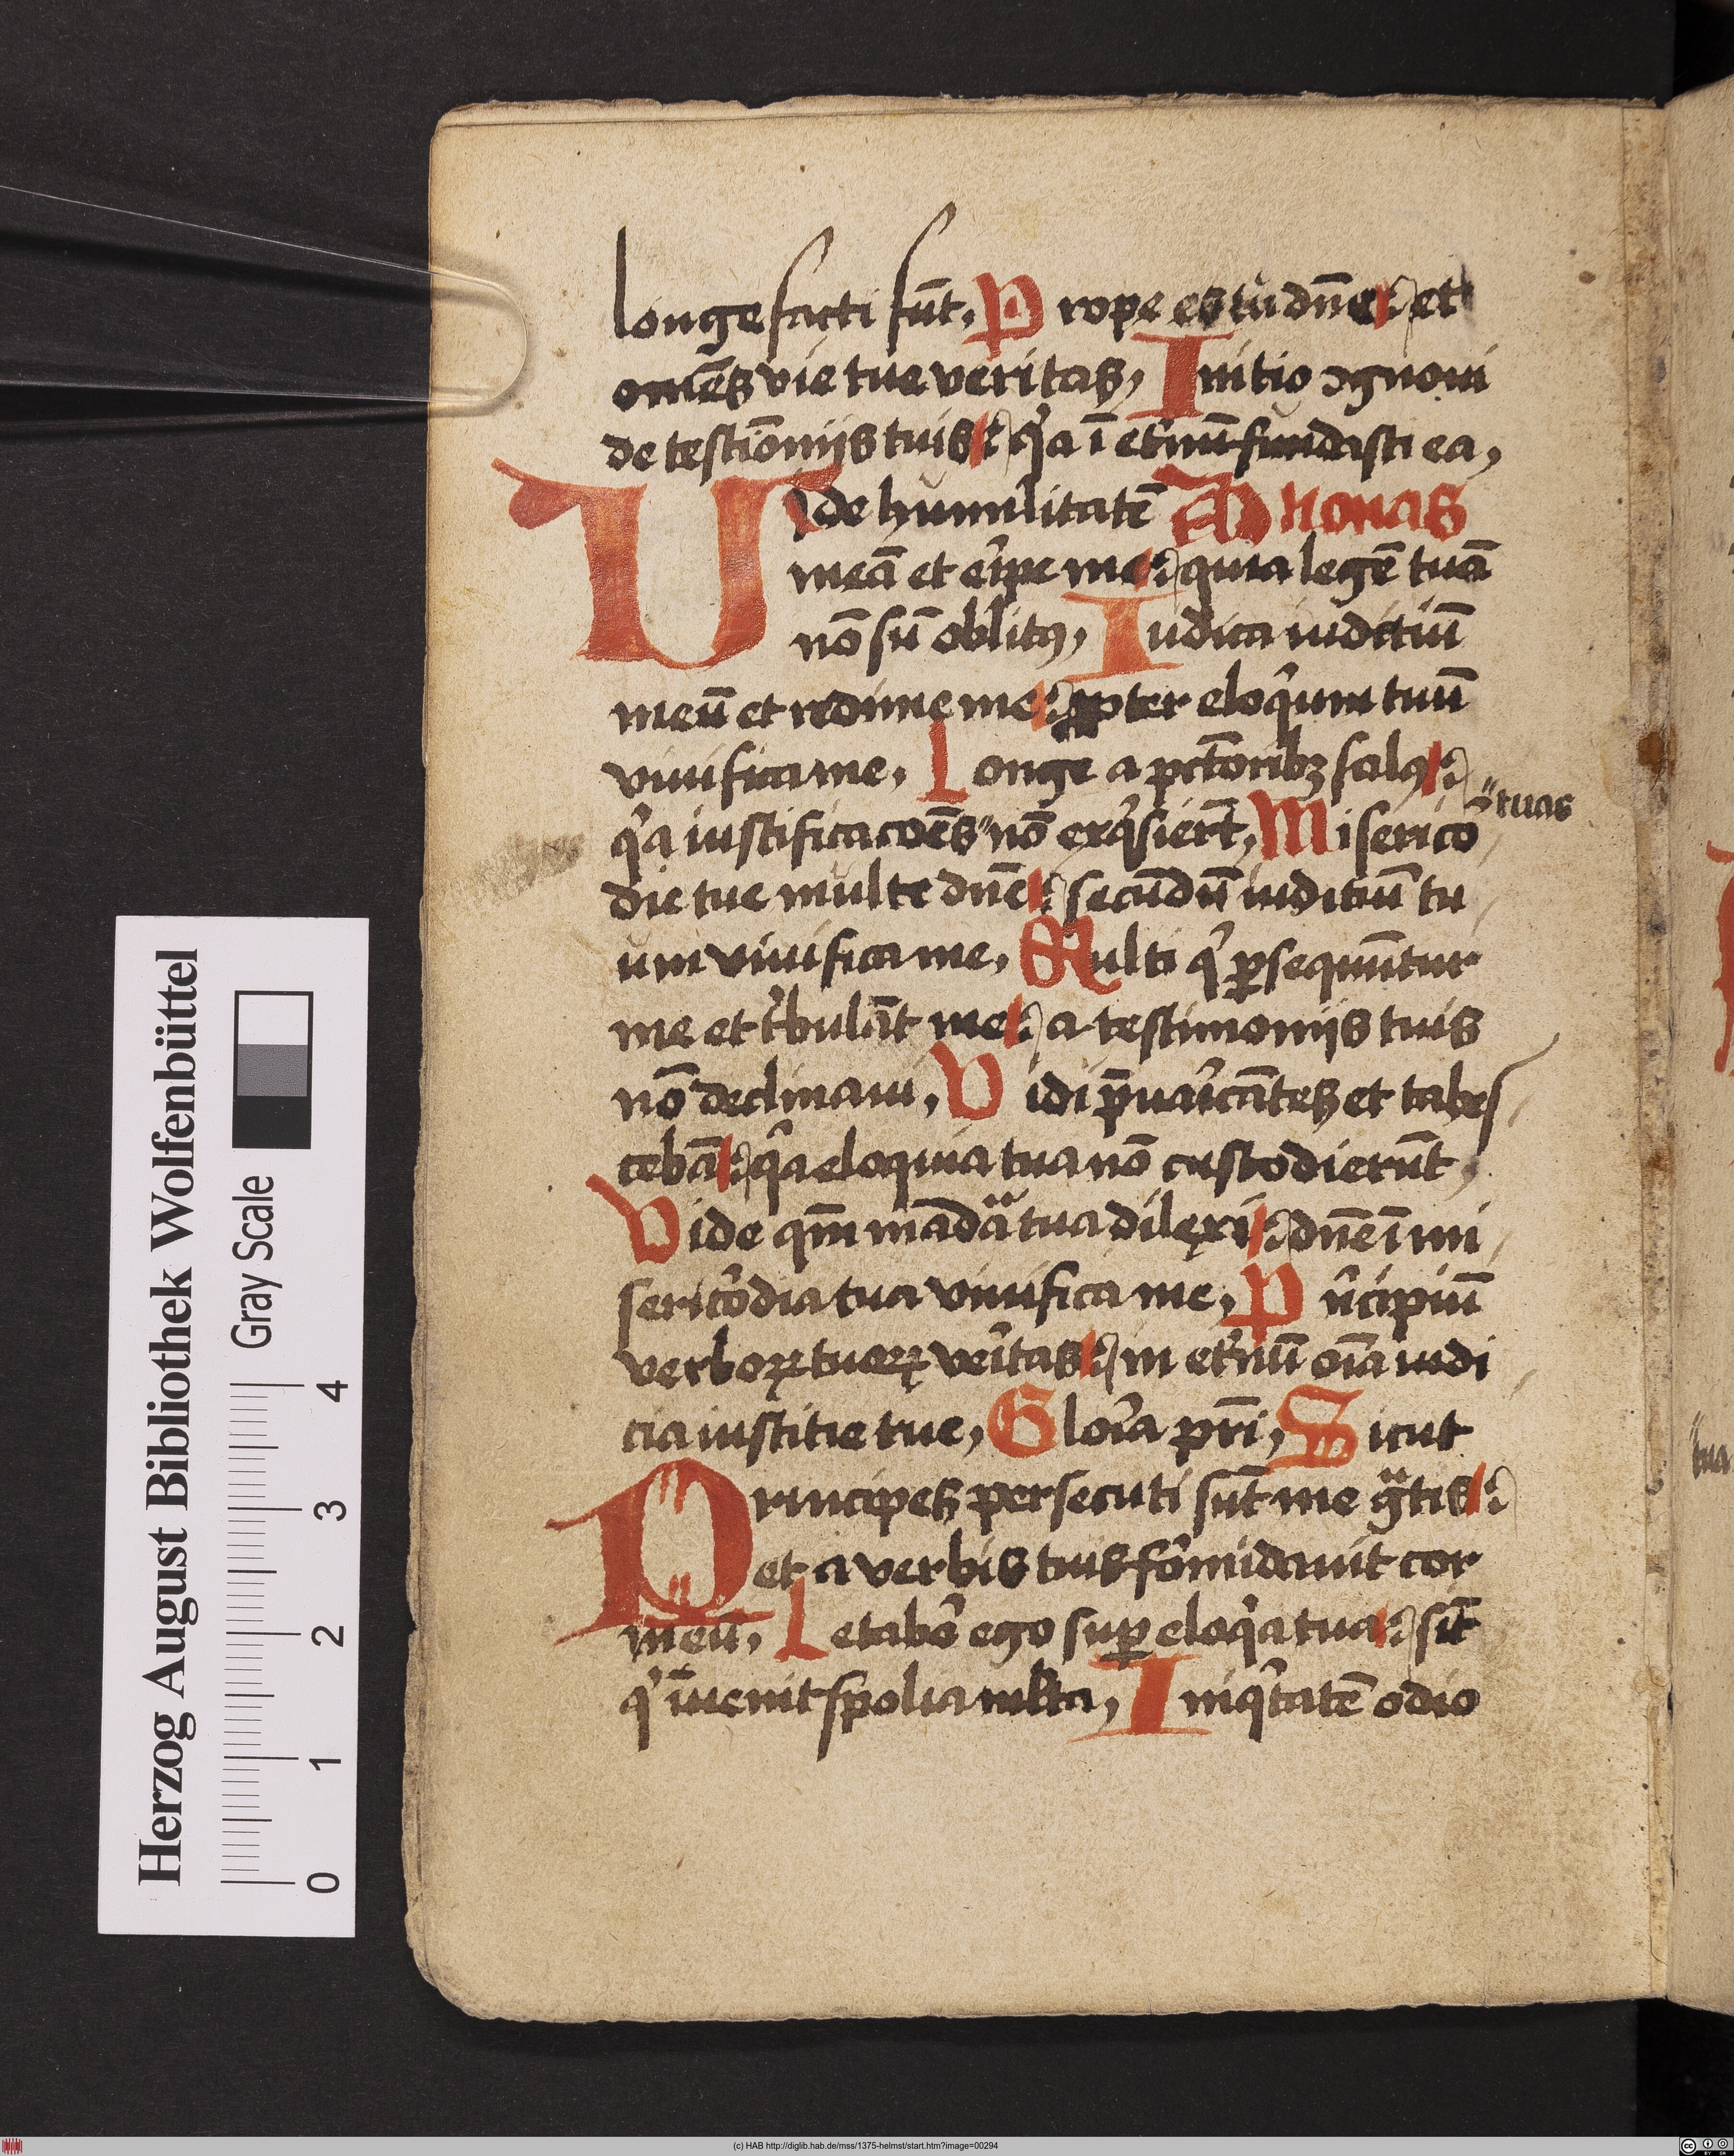 longe facti su̅t, Prope es tu dn̅e et
om̅es vie tue veritas, Initio ꝯgnoui
de testi̅oniis tuis qͥa i̅ et̓nu̅ fundasti ea,
Vide humilitate̅ Ad nonas
mea̅ et eripe me quia lege̅ tua̅
no̅ su̅ oblitꝯ, Iudica iuditiu̅
meu̅ et redime me ꝓpter eloqͥum tuu̅
viuifica me, Longe a pct̅oribꝫ salꝯ
qͥa iustificaco̅es " no̅ exqͥsiert̅, Miserico
"tuas
die tue multe dn̅e secu̅du̅ iuditiu̅ tu
um viuifica me, Multi qͥ ꝑsequu̅tur
me et tͥbula̅t me a testimoniis tuis
no̅ declinaui, Vidi p̅uarica̅tes et tabes
ceba̅ qͥa eloquia tua no̅ custodieru̅t,
Vide qm̅ ma̅data tua dilexi dn̅e i̅ mi
sericordia tua viuifica me, Pͥncipiu̅
verboꝝ tuoꝝ veritas in et̓nu̅ oi̅a iudi
cia iustitie tue, Gloria pri̅, Sicut
Principes persecuti su̅t me gͣtis
et a verbis tuis formidauit cor
meu̅, Letabor ego suꝑ eloqͥa tua sic̅
qͥ i̅uenit spolia mlta, Iniqͥtate̅ odio
tua
Herzog August Bibliothek Wolfenbüttel
Gray Scale
0 1 2 3 4
(c) HAB http://diglib.hab.de/mss/1375-helmst/start.htm?image=00294